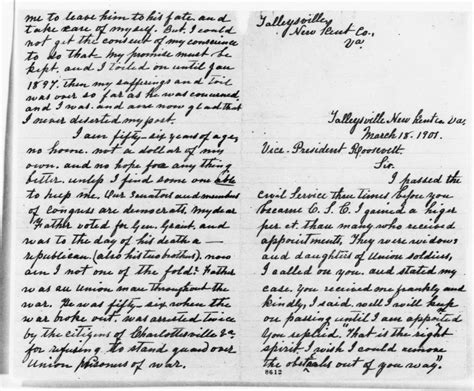 me to leave him to his fate, and
take care of myself. But I could
not get the consent of my conscience
to do that, my promise must be
kept. and I toiled on until Jan
1897. then my sufferings and toil
was over so far as he was concerned
and I was. and are now glad that
I never deserted my post.
I am fifty-six years of age,
no home. not a dollar of my
own. and no hope for any thing
better. unless I find some one able
to help me. Our Senators and members
of Congress are democrats, my dear
"Father voted for Gen, Grant, and
was to the day of his death a —
republican (also his two brothers). now
am I not one of the fold? Father
was a Union man throughout the
war. He was fifty-six when the
war broke out. was arrested twice
by the citizens of Charlottesville Va.
for refusing to stand guard over
Union prisoners of war.
Talleysville,
New Kent Co.,
Va
Talleysville, New Kent co Va,
March 18. 1901.
Vice-President Roosevelt
Sir.
I passed the
civil Service three times before you
became C. S. C. I gained a higer
per ct. than many who received
appointments, They were widows
and daughters of Union soldiers,
I called on you. and stated my
case. You received me frankly and
kindly, I said. well I will keep
on passing until I am appointed
You replied. "That is the right
spirit. I wish I could remove
the obstacles out of you way."
8612